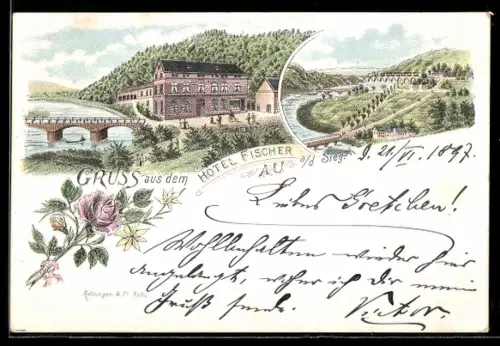 GRUSS aus dem
HOTEL FISCHER
AU a/d Sieg.
d. 21/VI. 1897.
Liebes Gretchen!
Wohlbehalten wieder hier
angelangt, woher ich Dir meinen
Gruß sende. Victor.